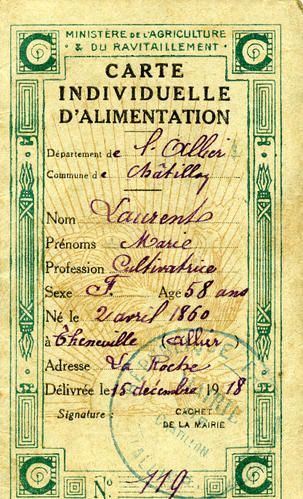 MINISTÈRE DE L'AGRICULTURE
& DU RAVITAILLEMENT
CARTE
INDIVIDUELLE
D'ALIMENTATION
Département de l'Allier
Commune de Châtillon
Nom Laurent
Prénoms Marie
Profession Cultivatrice
Sexe F. Age 58 ans
Né le 2 avril 1860
à Theneuille (Allier
Adresse La Roche
Délivrée le 15 décembre 1918
Signature : CACHET
DE LA MAIRIE
MAIRIE
N° 119